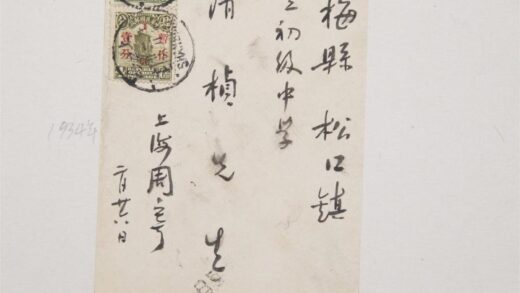 梅縣 松口鎮
立初級中学
清楨先生
上海周寄
二月廿六日
暫作
壹分
1934年